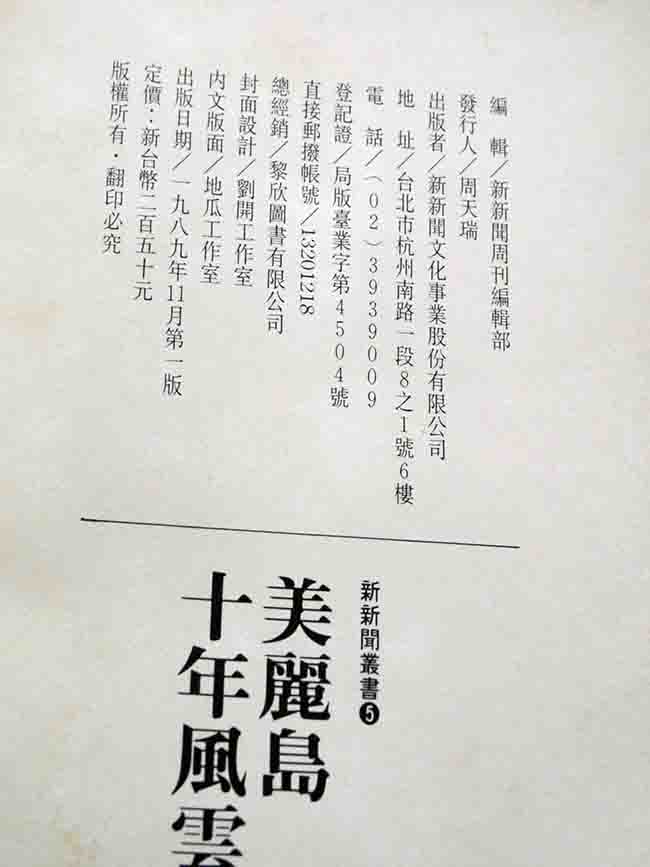 編　輯／新新聞周刊編輯部
發行人／周天瑞
出版者／新新聞文化事業股份有限公司
地　址／台北市杭州南路一段8之1號6樓
電　話／（02）3939009
登記證／局版臺業字第4504號
直接郵撥帳號／13201218
總經銷／黎欣圖書有限公司
封面設計／劉開工作室
內文版面／地瓜工作室
出版日期／一九八九年11月第一版
定價：新台幣二百五十元
版權所有・翻印必究
新新聞叢書❺
美麗島
十年風雲